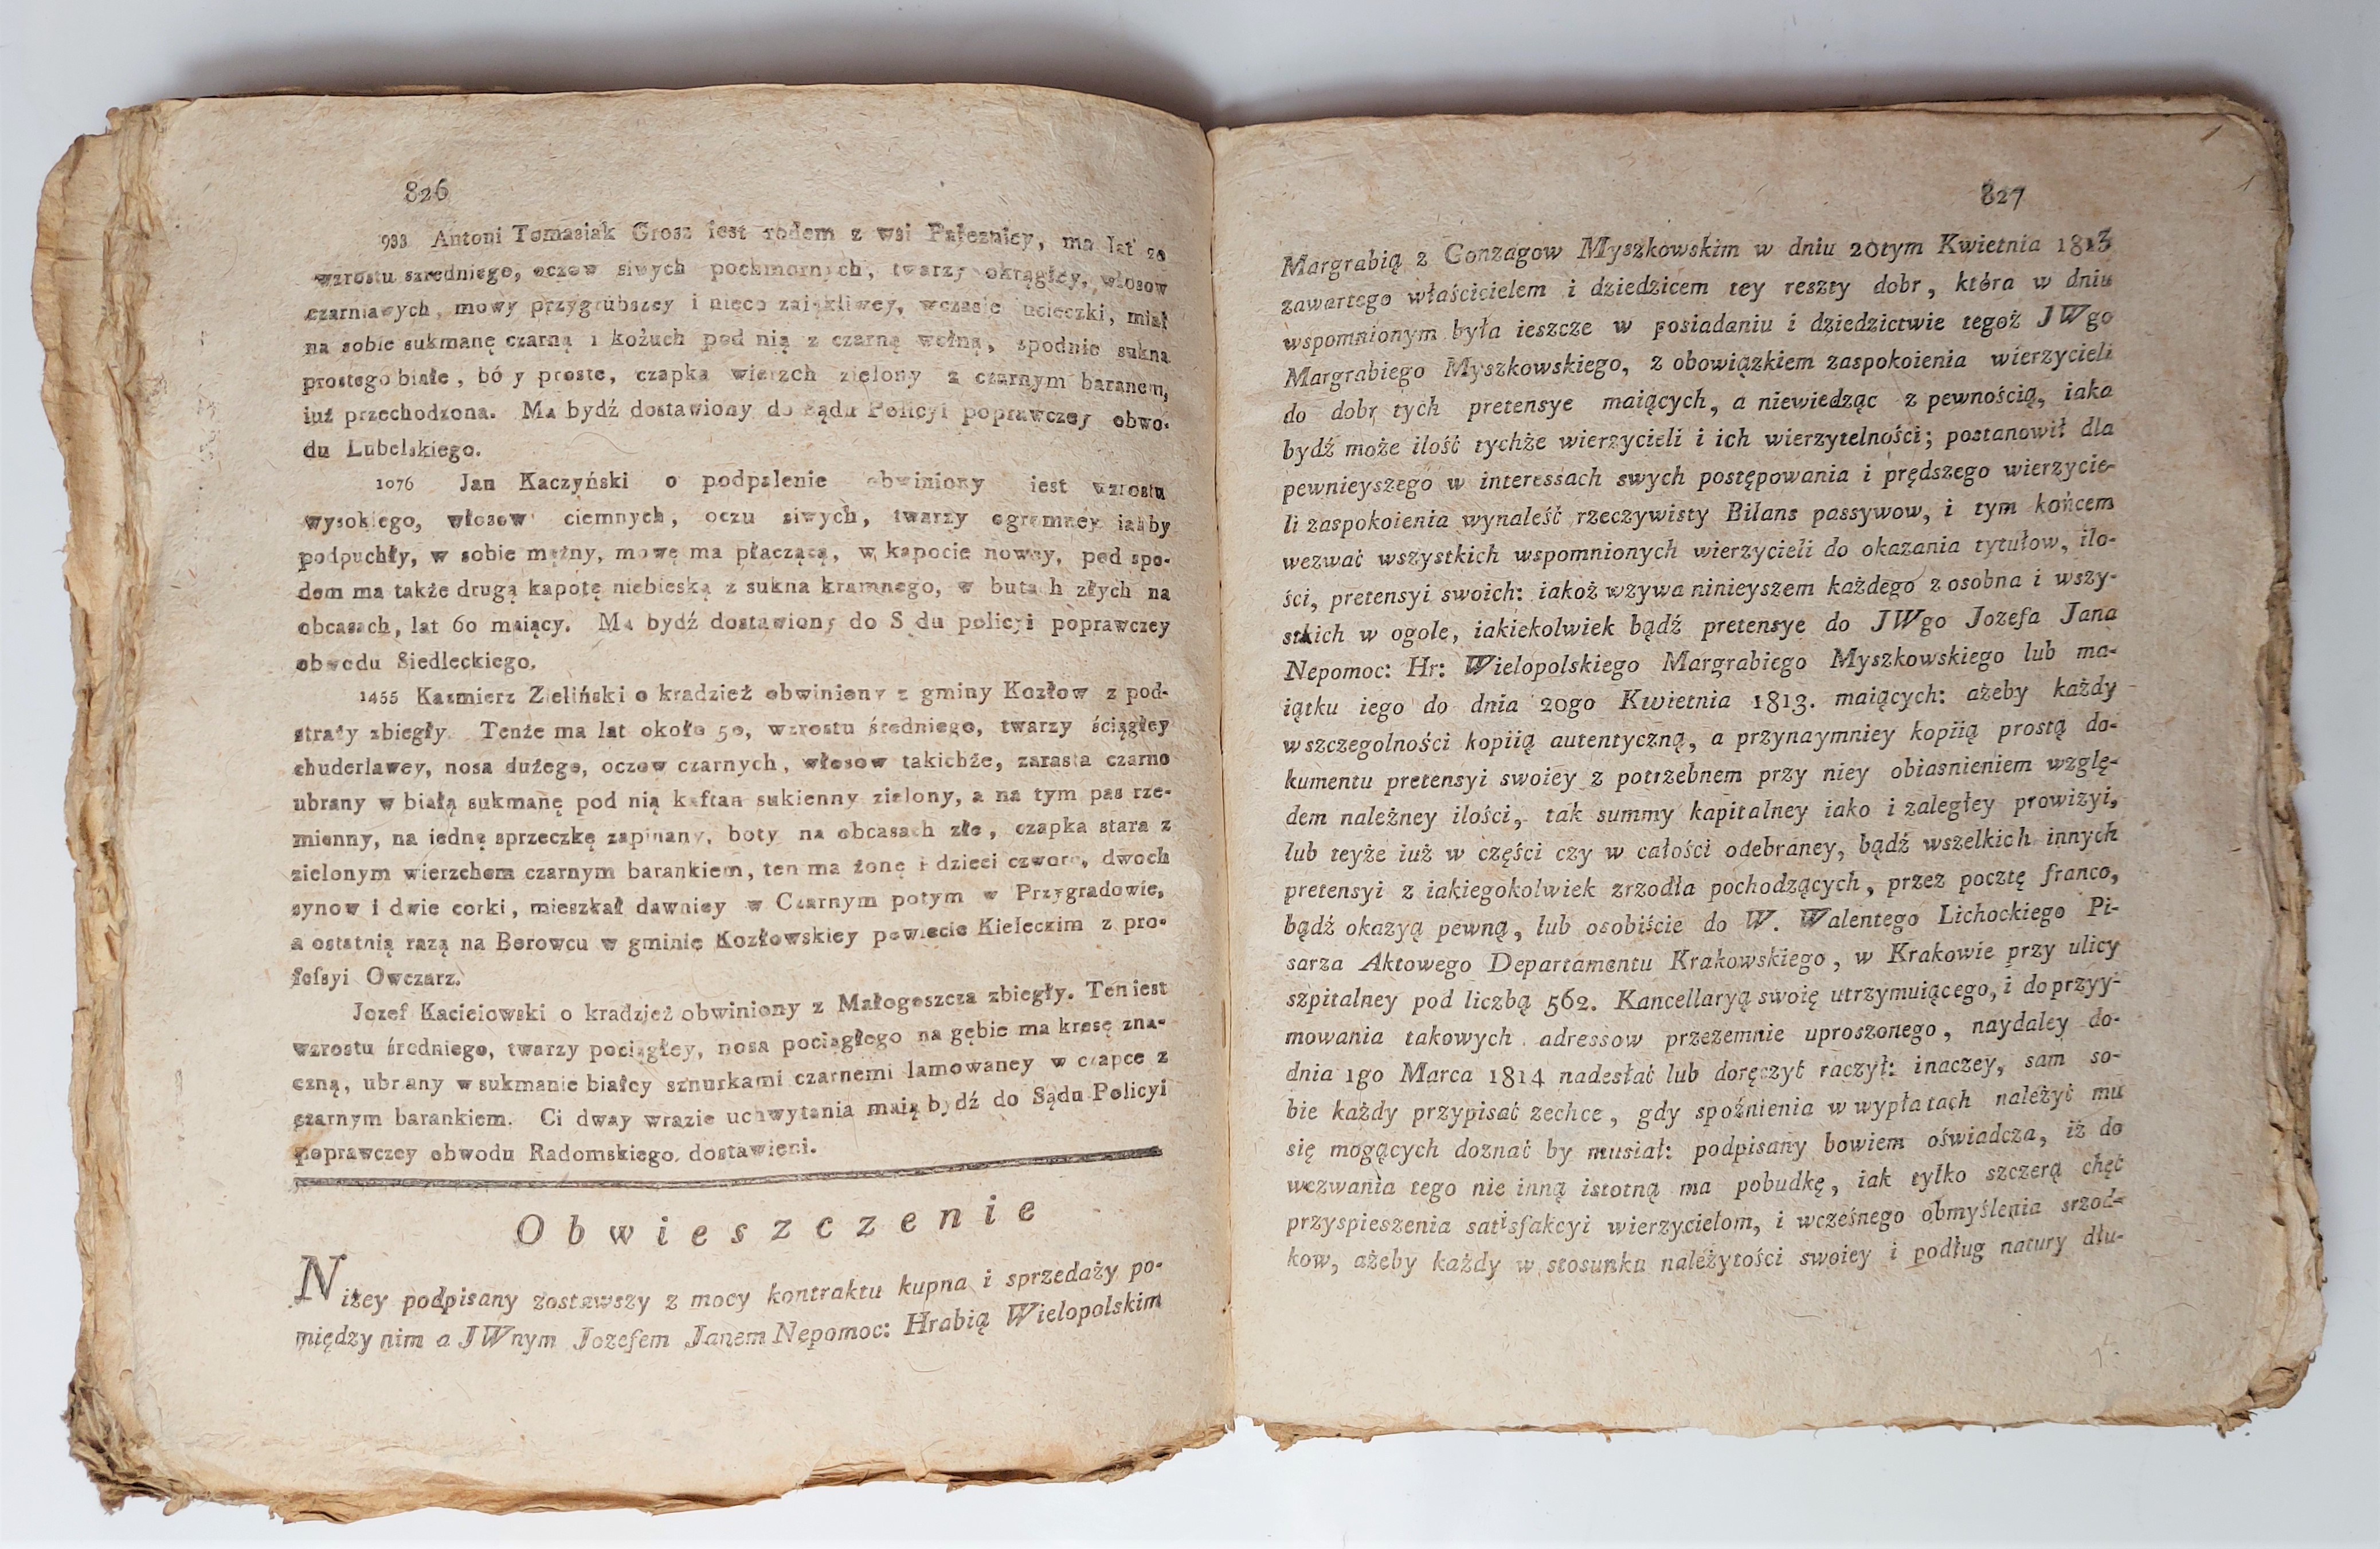 826
933 Antoni Tomasiak Grosz iest rodem z wsi Pałecznicy, ma lat 20
wzrostu szredniego, oczow siwych pochmornych, twarzy okrągłey, włosow
czarniawych, mowy przygrubszey i nieco zaiąkliwey, wczasie ucieczki, miał
na sobie sukmanę czarną i kożuch pod nią z czarną wełną, spodnie sukna
prostego białe, bóty proste, czapka wierzch zielony z czarnym baranem,
iuż przechodzona. Ma bydź dostawiony do Sądu Policyi poprawczey obwo-
du Lubelskiego.
1076 Jan Kaczyński o podpalenie obwiniony iest wzrostu
wysokiego, włosow ciemnych, oczu siwych, twarzy ogromney iakby
podpuchły, w sobie mężny, mowę ma płaczącą, w kapocie nowey, pod spo-
dem ma także drugą kapotę niebieską z sukna kramnego, w butach złych na
obcasach, lat 60 maiący. Ma bydź dostawiony do Sądu policyi poprawczey
obwodu Siedleckiego.
1455 Kazmierz Zieliński o kradzież obwiniony z gminy Kozłow z pod-
straży zbiegły. Tenże ma lat około 50, wzrostu średniego, twarzy ściągłey
chuderlawey, nosa dużego, oczow czarnych, włosow takichże, zarasta czarno
ubrany w białą sukmanę pod nią kaftan sukienny zielony, a na tym pas rze-
mienny, na iednę sprzeczkę zapinany, boty na obcasach złe, czapka stara z
zielonym wierzchem czarnym barankiem, ten ma żonę i dzieci czworo, dwoch
synow i dwie corki, mieszkał dawniey w Czarnym potym w Przygradowie,
a ostatnią razą na Borowcu w gminie Kozłowskiey powiecie Kieleckim z pro-
fessyi Owczarz.
Jozef Kacieiowski o kradzież obwiniony z Małogoszcza zbiegły. Ten iest
wzrostu średniego, twarzy pociągłey, nosa pociągłego na gębie ma kresę zna-
czną, ubrany w sukmanie białey sznurkami czarnemi lamowaney w czapce z
czarnym barankiem. Ci dway wrazie uchwytania maią bydź do Sądu Policyi
poprawczey obwodu Radomskiego, dostawieni.
Obwieszczenie
Niżey podpisany zostawszy z mocy kontraktu kupna i sprzedaży po-
między nim a JWnym Jozefem Janem Nepomoc: Hrabią Wielopolskim
827
Margrabią z Gonzagow Myszkowskim w dniu 20tym Kwietnia 1813
zawartego właścicielem i dziedzicem tey reszty dobr, która w dniu
wspomnionym była ieszcze w posiadaniu i dziedzictwie tegoż JWgo
Margrabiego Myszkowskiego, z obowiązkiem zaspokoienia wierzycieli
do dobr tych pretensye maiących, a niewiedząc z pewnością, iaka
bydź może ilość tychże wierzycieli i ich wierzytelności; postanowił dla
pewnieyszego w interessach swych postępowania i prędszego wierzycie-
li zaspokoienia wynaleść rzeczywisty Bilans passywow, i tym końcem
wezwać wszystkich wspomnionych wierzycieli do okazania tytułow, ilo-
ści, pretensyi swoich: iakoż wzywa ninieyszem każdego z osobna i wszy-
stkich w ogole, iakiekolwiek bądź pretensye do JWgo Jozefa Jana
Nepomoc: Hr: Wielopolskiego Margrabiego Myszkowskiego lub ma-
iątku iego do dnia 20go Kwietnia 1813. maiących: ażeby każdy
wszczegolności kopiią autentyczną, a przynaymniey kopiią prostą do-
kumentu pretensyi swoiey z potrzebnem przy niey obiasnieniem wzglę-
dem należney ilości, tak summy kapitalney iako i zaległey prowizyi,
lub teyże iuż w części czy w całości odebraney, bądź wszelkich innych
pretensyi z iakiegokolwiek zrzodła pochodzących, przez pocztę franco,
bądź okazyą pewną, lub osobiście do W. Walentego Lichockiego Pi-
sarza Aktowego Departamentu Krakowskiego, w Krakowie przy ulicy
szpitalney pod liczbą 562. Kancellaryą swoię utrzymuiącego, i do przyy-
mowania takowych adressow przezemnie uproszonego, naydaley do-
dnia 1go Marca 1814 nadesłać lub doręczyć raczył: inaczey, sam so-
bie każdy przypisać zechce, gdy spoźnienia w wypłatach należyć mu
się mogących doznać by musiał: podpisany bowiem oświadcza, iż do
wezwania tego nie inną istotną ma pobudkę, iak tylko szczerą chęć
przyspieszenia satisfakcyi wierzycielom, i wcześnego obmyślenia srzod-
kow, ażeby każdy w stosunku należytości swoiey i podług natury dłu-